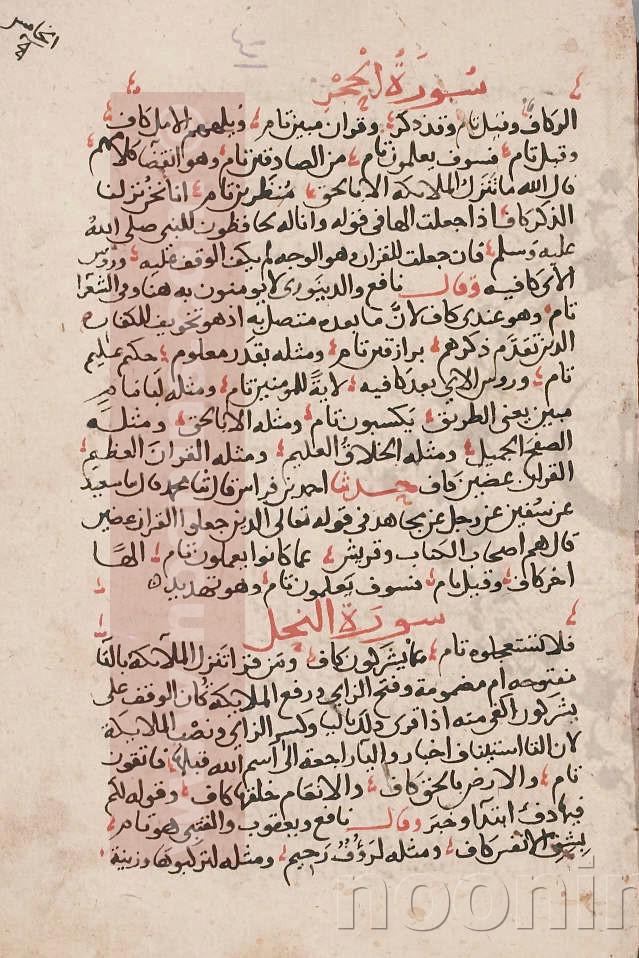 الخامس
سورة الحجر
الر كاف وقيل تام وقد ذكر وقران مبين تام ويلههم الامل كاف
وقيل تام فسوف يعلمون تام من الصادقين تام وهو انقضا كلامهم
قال الله ما تنزل الملائكة الا بالحق منظرين تام انا نحن نزلنا
الذكر كاف اذا جعلت الها في قوله وانا له لحافظون للنبي صلى الله
عليه وسلم فان جعلت للقران وهو الوجه لم يكف الوقف عليه ورؤس
الآي كافية وقال نافع والدينوري لا يومنون به هنا وفي الشعرا
تام وهو عندي كاف لان ما بعده متصل به اذ هو تخويف للكفار
الذين تقدم ذكرهم برازقين تام ومثله بقدر معلوم حكيم عليم
تام ورؤس الاي بعد كافية لاية للمومنين تام ومثله لبامام
مبين يعني الطريق يكسبون تام ومثله الا بالحق ومثله
الصفح الجميل ومثله الخلاق العليم ومثله القران العظيم
القران عضين كاف حدثنا احمد بن فراس قال ثنا محمد قال ثنا سعيد
عن سفين عن رجل عن مجاهد في قوله تعالى الذين جعلوا القران عضين
قال هم اصحاب الكتاب وقريش عما كانوا يعملون تام الها
اخر كاف وقيل تام فسوف يعلمون تام وهو تهديد
سورة النحل
فلا تستعجلوه تام عما يشركون كاف ومن قرا تنزل الملائكة بالتا
مفتوحة ام مضمومة وفتح الزاي ورفع الملائكة كان الوقف على
يشركون اكفى منه اذا قرى ذلك باليا وكسر الزاي ونصب الملائكة
لان التا استيناف اخبار واليا راجعة الى اسم الله قبلها فاتقون
تام والارض بالحق كاف والانعام خلقها كاف وقوله لكم
فيها دفء ابتدا وخبر وقال نافع ويعقوب والقتبي هو تام
بشق الانفس كاف ومثله لرؤف رحيم ومثله لتركبوها وزينة
noonin